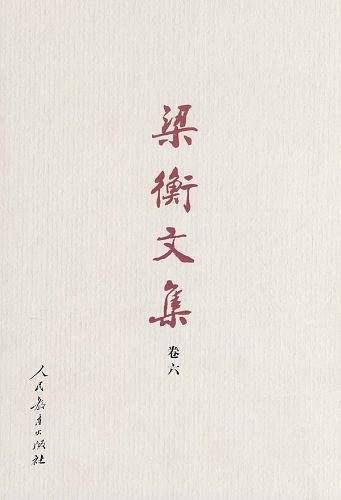 梁衡文集
卷六
人民教育出版社